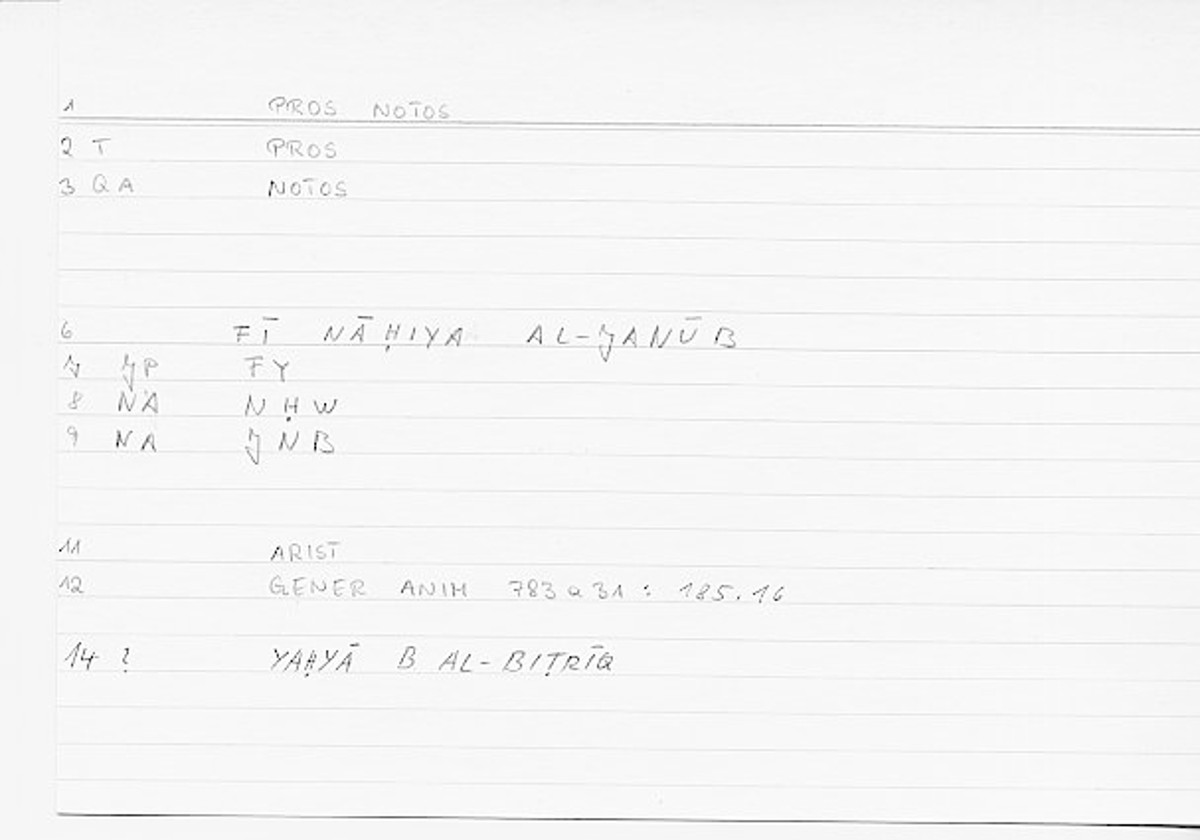 1 PROS NOTOS
2 T PROS
3 QA NOTOS
6 FĪ NĀḤIYA AL-JANŪB
7 JP FY
8 NA NḤW
9 NA JNB
11 ARIST
12 GENER ANIM 783a31 : 185.16
14 ? YAḤYĀ B AL-BIṬRĪQ